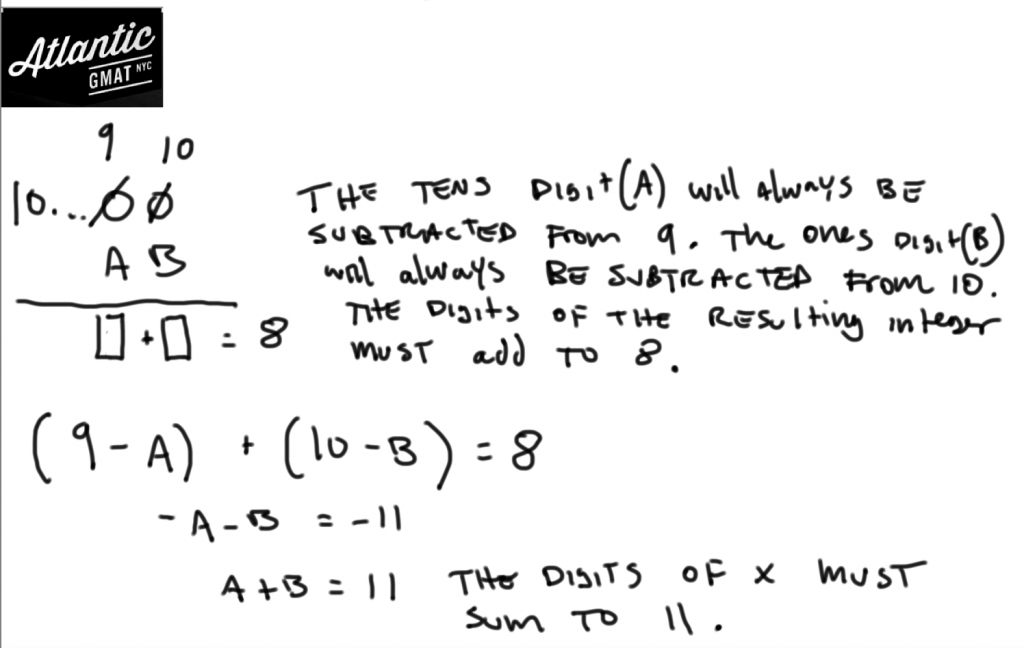 Atlantic
GMAT NYC
9 10
10...00
A B
□ + □ = 8
THE TENS DIGIT (A) will always BE
SUBTRACTED From 9. The ones DIGIT (B)
will always BE SUBTRACTED From 10.
THE DIgits OF THE RESulting integer
MUST add TO 8.
(9-A) + (10-B) = 8
-A-B = -11
A+B = 11 THE DIGITS OF x MUST
Sum TO 11.